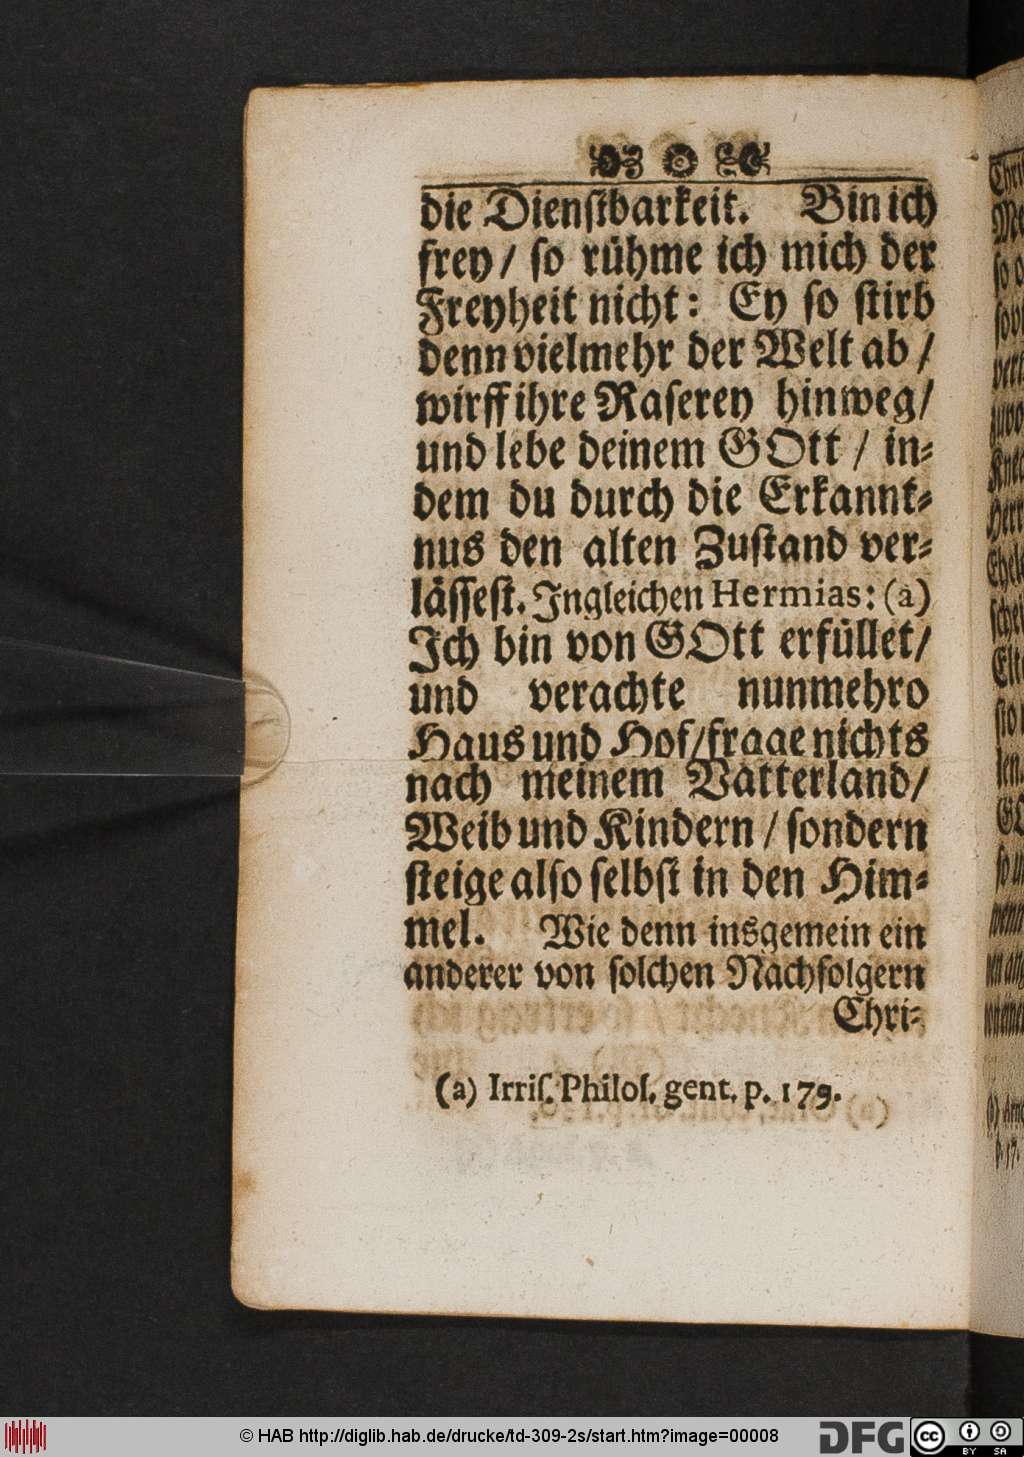 die Dienſtbarkeit. Bin ich
frey / ſo rühme ich mich der
Freyheit nicht: Ey ſo ſtirb
denn vielmehr der Welt ab /
wirff ihre Raſerey hinweg /
und lebe deinem GOtt / in⸗
dem du durch die Erkannt⸗
nus den alten Zuſtand ver⸗
läſſeſt. Ingleichen Hermias: (a)
Ich bin von GOtt erfüllet /
und verachte nunmehro
Haus und Hof / frage nichts
nach meinem Vatterland /
Weib und Kindern / ſondern
ſteige alſo ſelbſt in den Him⸗
mel. Wie denn insgemein ein
anderer von ſolchen Nachfolgern
Chri⸗
(a) Irriſ. Philoſ. gent. p. 179.
© HAB http://diglib.hab.de/drucke/td-309-2s/start.htm?image=00008
DFG
cc BY SA